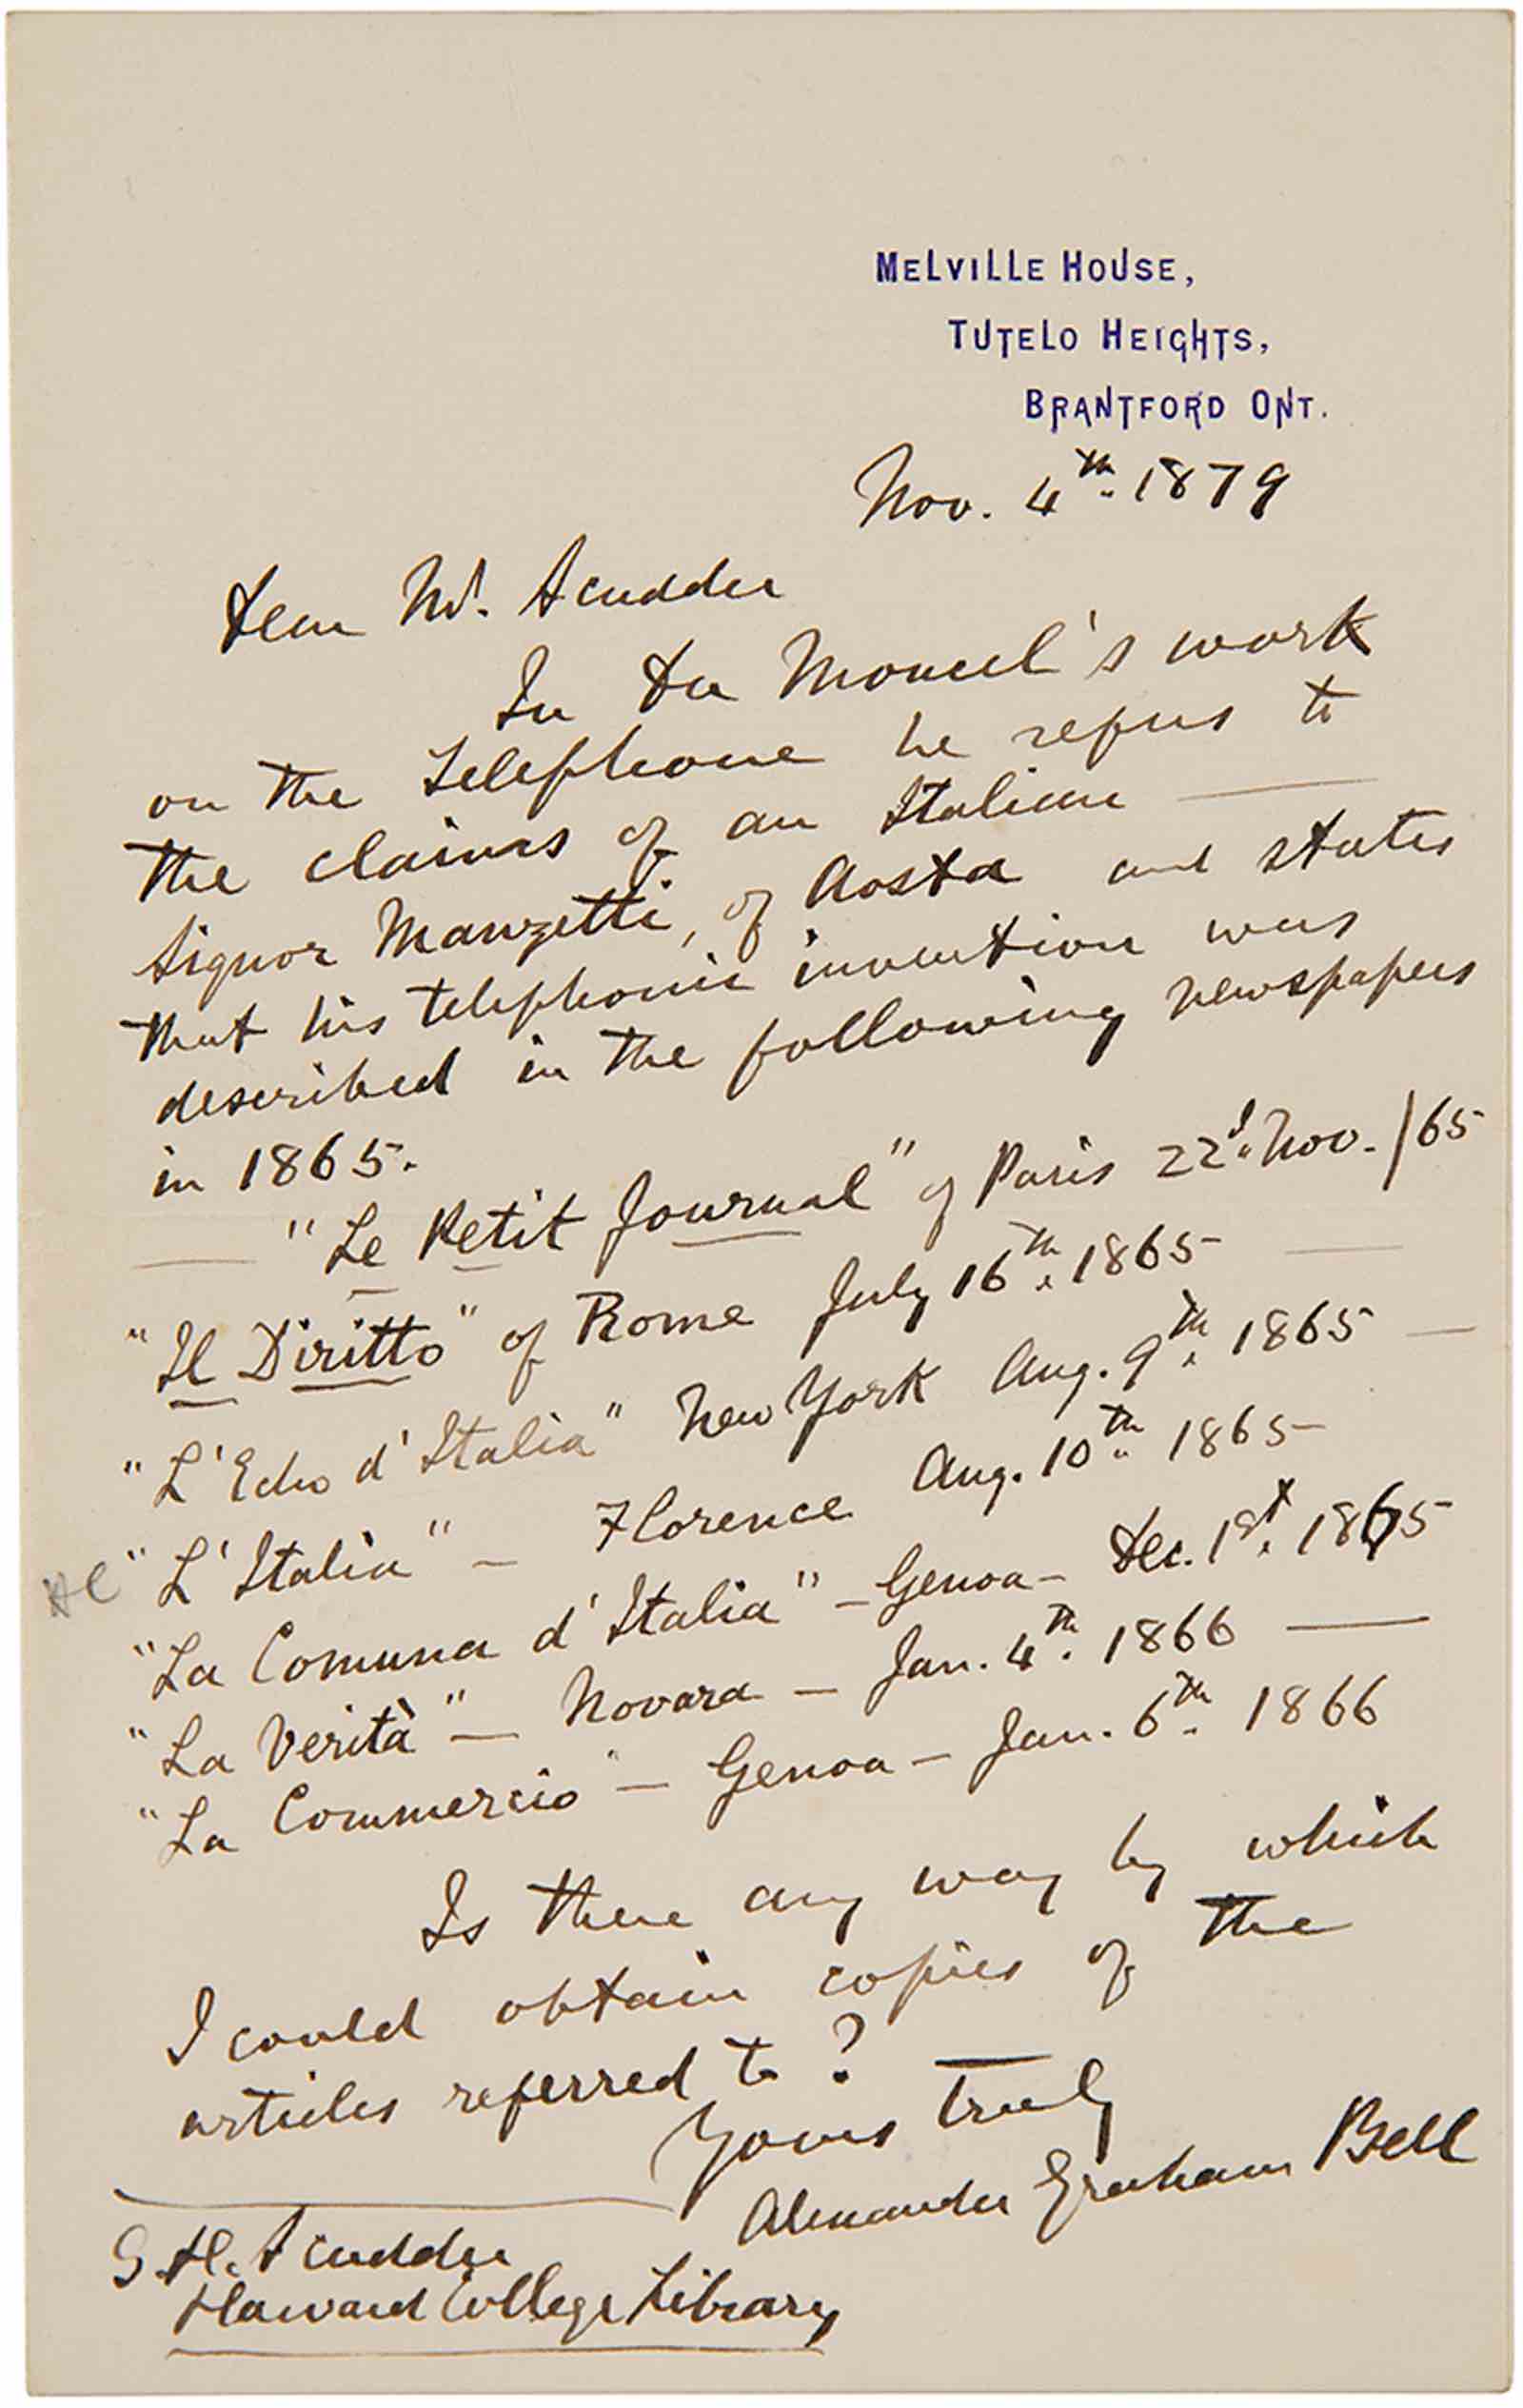 MELVILLE HOUSE,
TUTELO HEIGHTS,
BRANTFORD ONT.
Nov. 4th. 1879
Dear Mr. Scudder
In Du Moncel's work
on the Telephone he refers to
the claims of an Italian —
Signor Manzetti, of Aosta and states
that his telephonic invention was
described in the following newspapers
in 1865.
— "Le Petit Journal" of Paris 22d. Nov. /65
"Il Diritto" of Rome July 16th. 1865 —
"L'Echo d'Italia" New York Aug. 9th. 1865 —
"L'Italia" — Florence Aug. 10th. 1865
"La Comuna d'Italia" — Genoa — Dec. 1st. 1865
"La Verità" — Novara — Jan. 4th. 1866 —
"La Commercio" — Genoa — Jan. 6th. 1866
Is there any way by which
I could obtain copies of the
articles referred to?
Yours truly
Alexander Graham Bell
S. H. Scudder
Harvard College Library